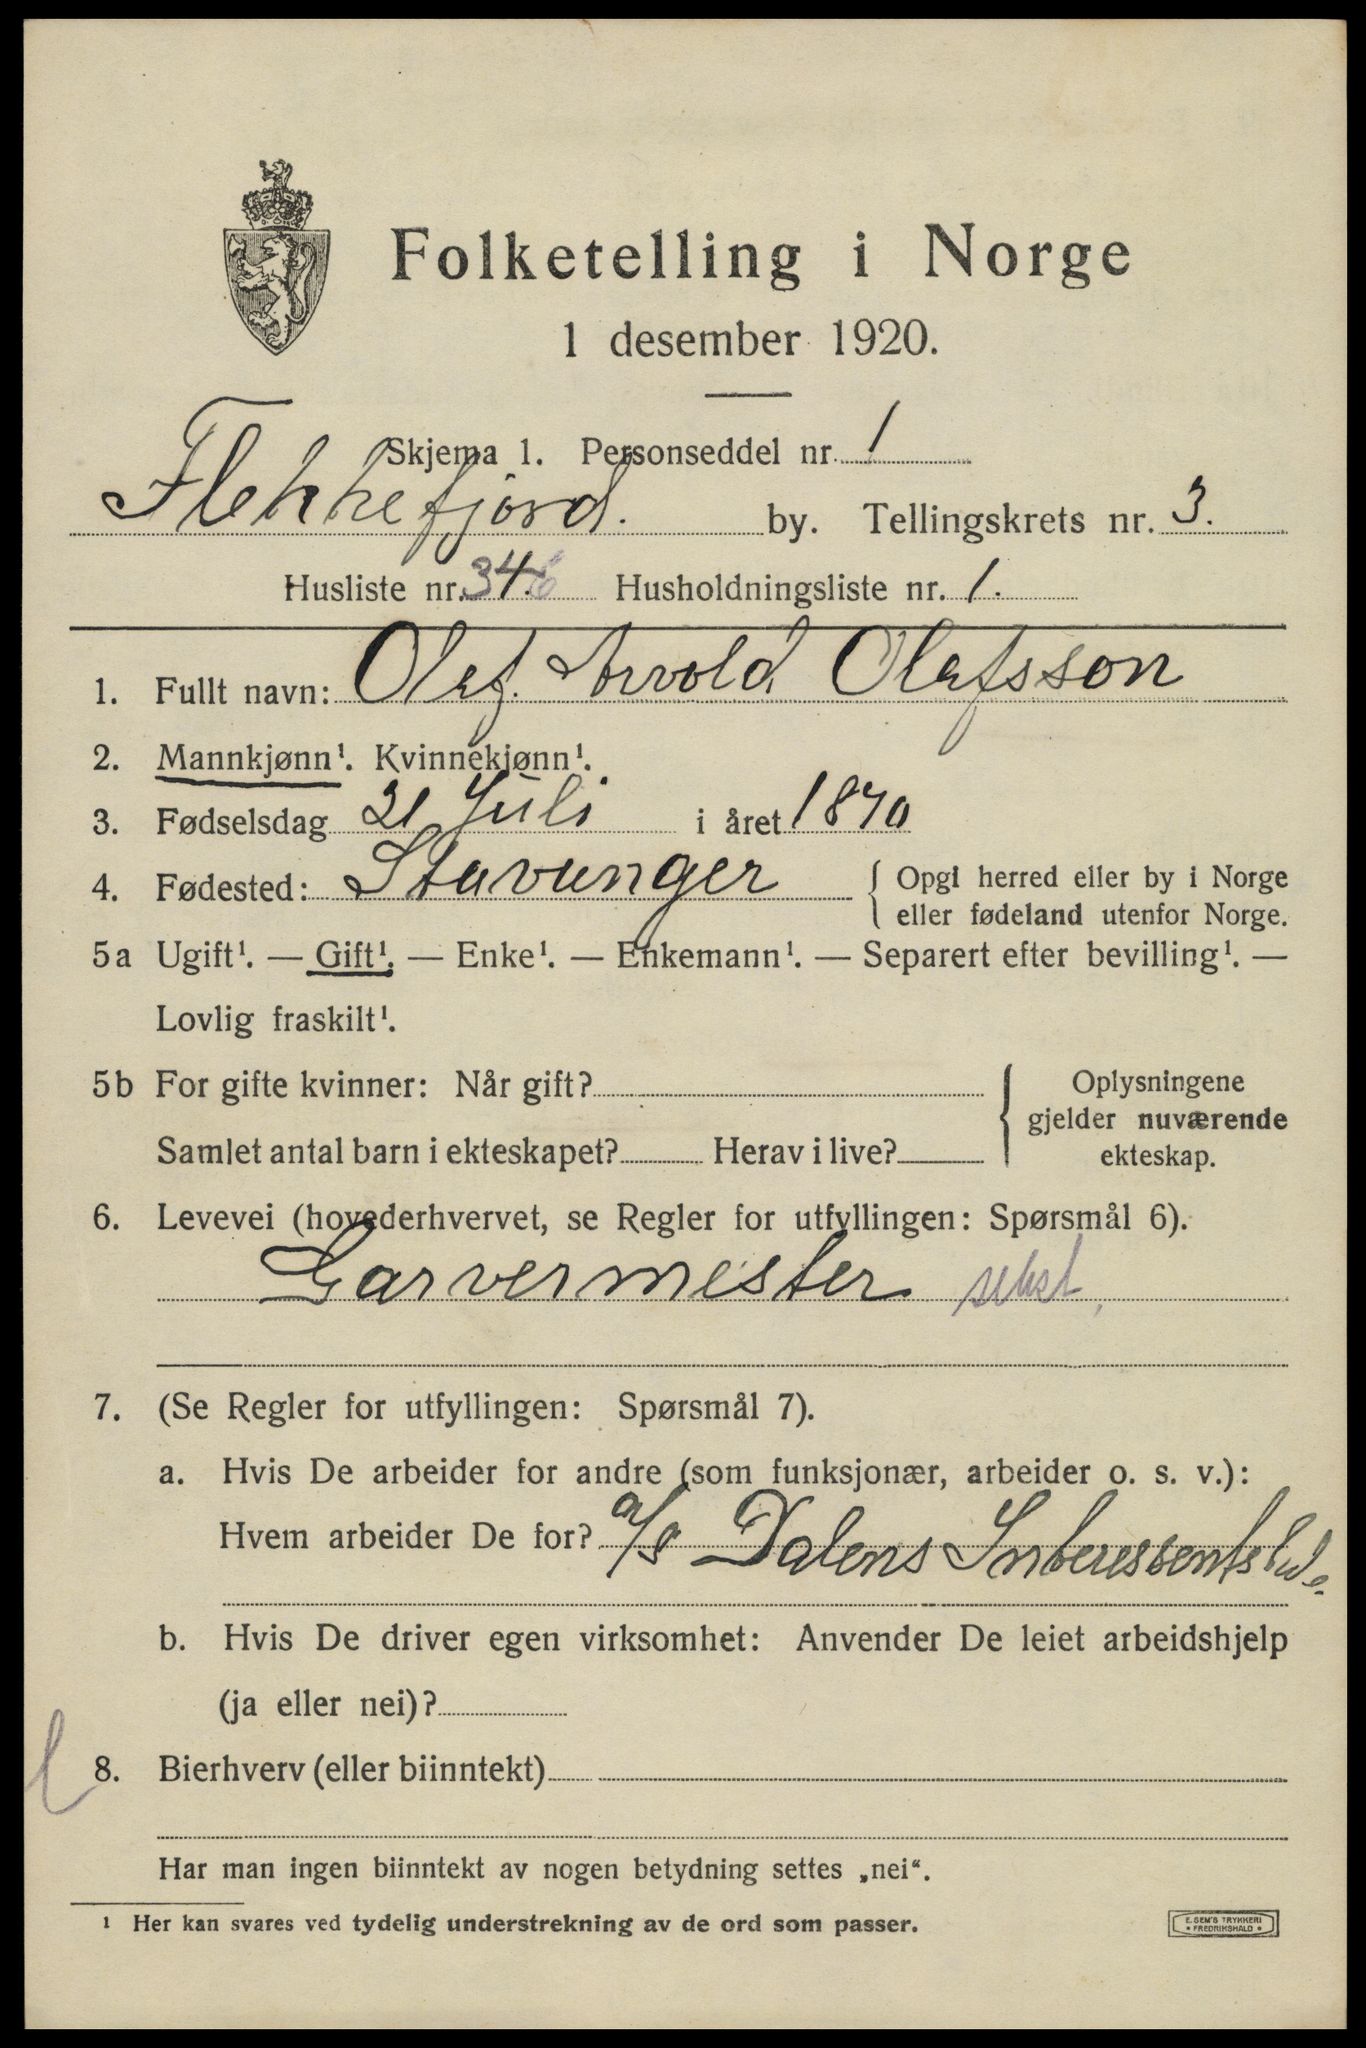 Folketelling i Norge
1 desember 1920.
Skjema 1. Personseddel nr. 1
Flekkefjord. by. Tellingskrets nr. 3.
Husliste nr. 34. Husholdningsliste nr. 1.
1. Fullt navn: Olaf Arvold Olafsson
2. Mannkjønn¹. Kvinnekjønn¹.
3. Fødselsdag 21 Juli i året 1870
4. Fødested: Stavanger { Opgi herred eller by i Norge
eller fødeland utenfor Norge.
5a Ugift¹. — Gift¹. — Enke¹. — Enkemann¹. — Separert efter bevilling¹. —
Lovlig fraskilt¹.
5b For gifte kvinner: Når gift? { Oplysningene
gjelder nuværende
Samlet antal barn i ekteskapet? Herav i live? ekteskap.
6. Levevei (hovederhvervet, se Regler for utfyllingen: Spørsmål 6).
Garvermester
7. (Se Regler for utfyllingen: Spørsmål 7).
a. Hvis De arbeider for andre (som funksjonær, arbeider o. s. v.):
Hvem arbeider De for? a/s Dalens
b. Hvis De driver egen virksomhet: Anvender De leiet arbeidshjelp
(ja eller nei)?
8. Bierhverv (eller biinntekt)
Har man ingen biinntekt av nogen betydning settes „nei“.
¹ Her kan svares ved tydelig understrekning av de ord som passer.
E. SEM'S TRYKKERI
* FREDRIKSHALD *